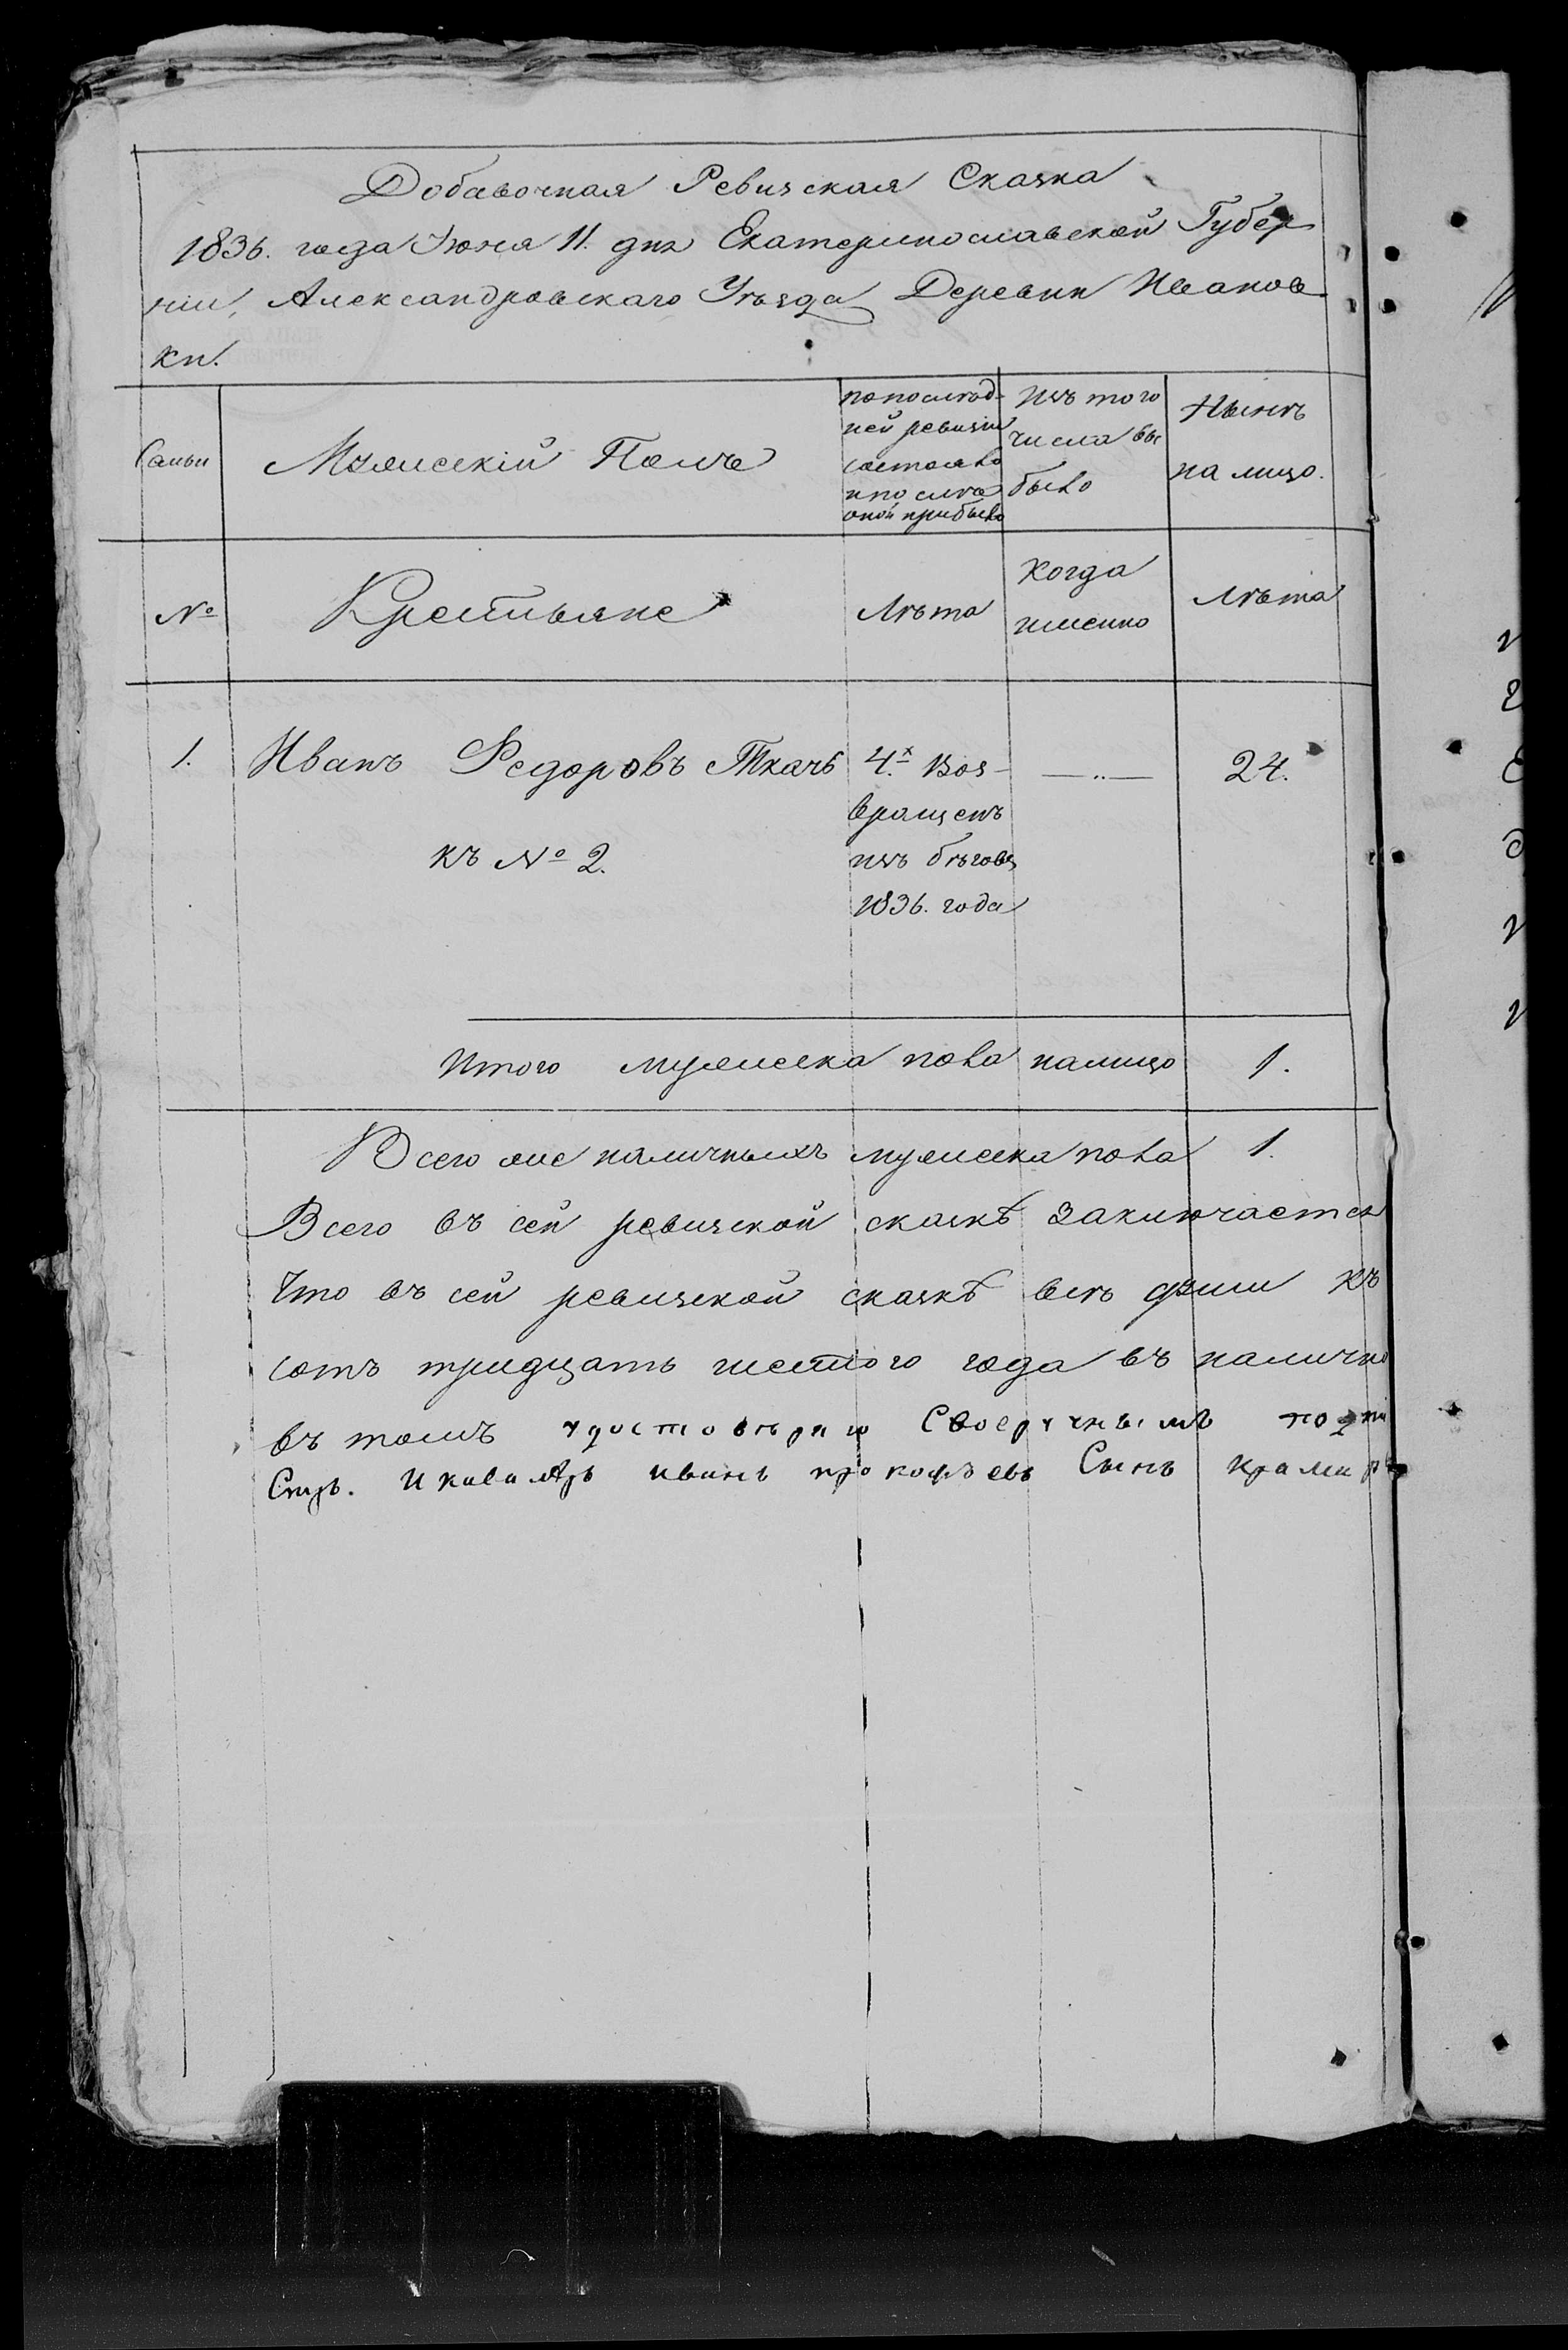 Добавочная Ревизская Сказка
1836. года Іюня 11. дня Екатеринославской Губер
ніи, Александровскаго Уѣзда Деревни Иванов
ки.
Семьи
Мужескій Полъ
по послѣд-
ней ревизіи
состояло
и послѣ
оной прибыло
Изъ того
числа вы
было
Нынѣ
на лицо.
№
Крестьяне
Лѣта
Когда
именно
Лѣта
1. Иванъ Федоровъ Ткачь 4.х Воз- —„— 24.
вращенъ
къ № 2. изъ бѣговъ
1836. года
Итого мужеска пола налицо 1.
Всего же наличныхъ мужеска пола 1.
Всего въ сей ревизской сказкѣ заключается
Что въ сей ревизской сказкѣ всѣ души къ
сотъ тридцать шестого года въ налично
въ томъ удостовѣряю Своеручнымъ подпи
И кавалѣръ иванъ прокофъевъ Сынъ